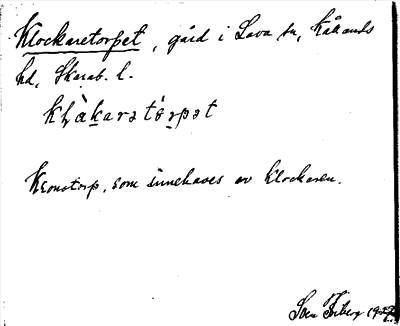 Klockaretorpet, gård i Lava sn, Kåkands
hd, Skarab. l.
kḷàkarətórpət
Kronotorp, som innehaves av klockaren.
Sven